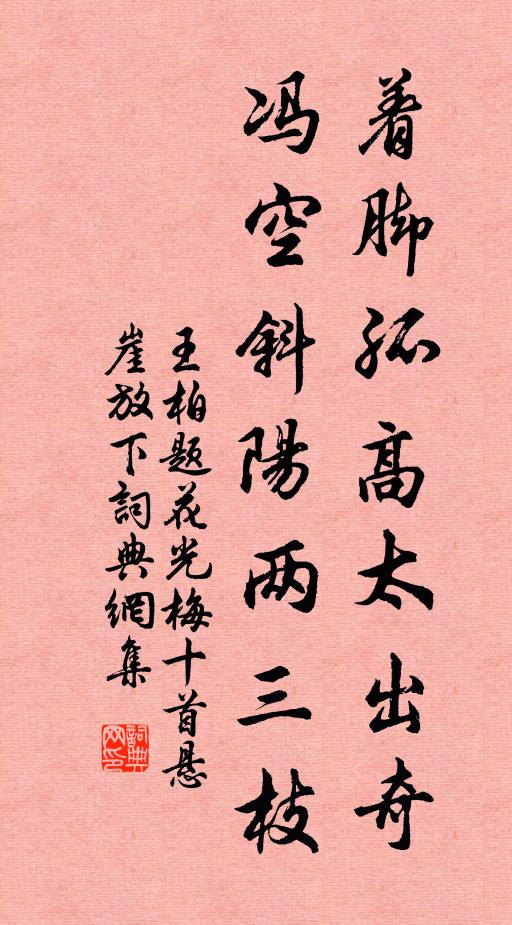 着脚孤高太出奇
冯空斜陽两三枝
王柏题花光梅十首悬
崖放下詞典網集
詞典网印